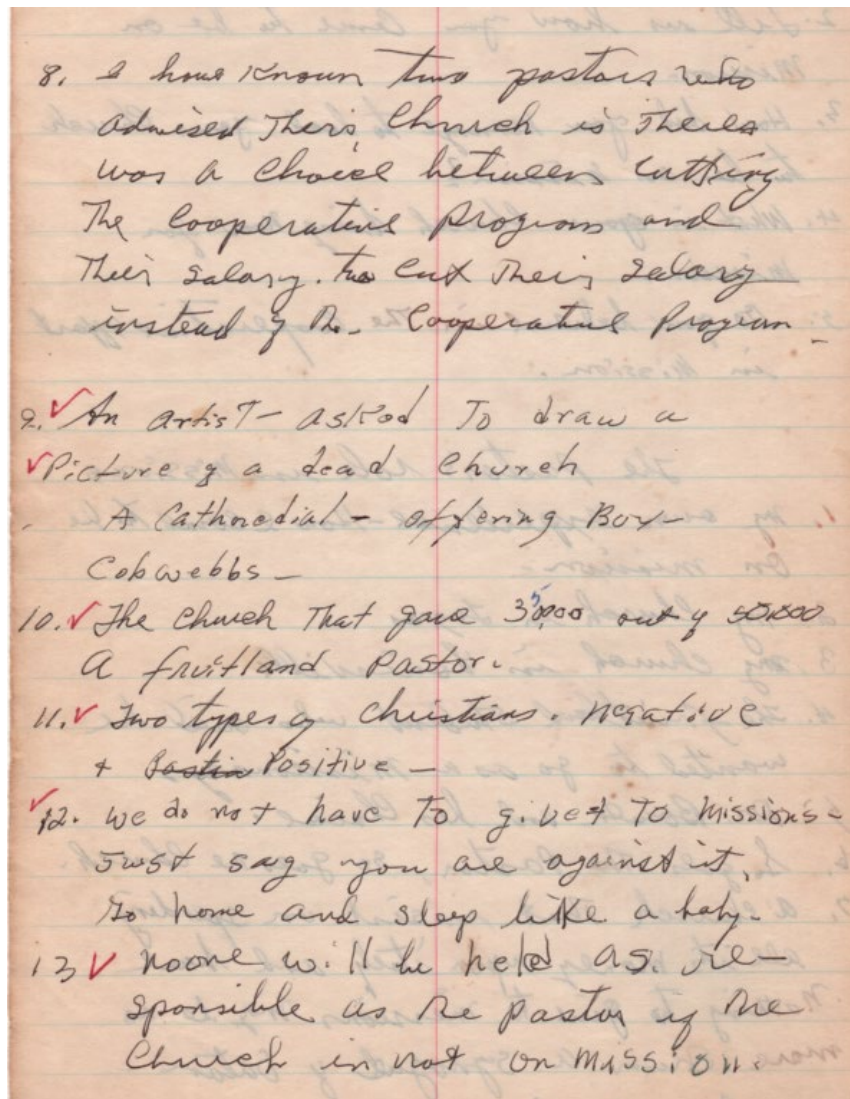 8. I have known two pastors who
advised Their Church is There
was a choice between cutting
The Cooperative Program and
Their salary. to cut Their salary
instead of The Cooperative Program
9. ✓ An artist - asked To draw a
✓ Picture of a dead Church
A Cathredial - offering Box -
Cobwebbs -
10. ✓ The Church That gave 35,000 out of 50,000
A fruitland Pastor.
11. ✓ Two types of Christians. negative
+ Positive -
✓ 12. we do not have To give to missions -
Just say you are against it,
Go home and sleep like a baby.
13 ✓ noone will be held as re-
sponsible as The pastor if The
Church in not on mission.